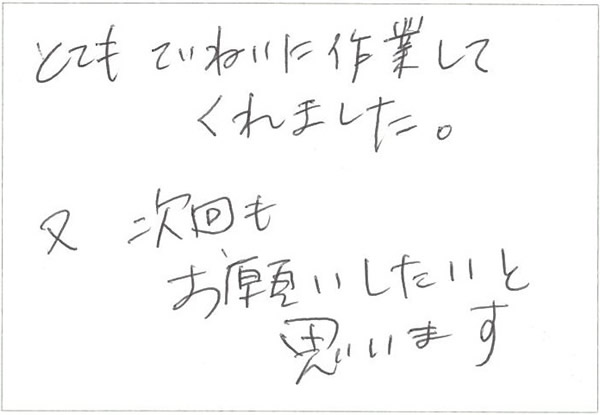 とても ていねいに作業して
くれました。
又 次回も
お願いしたいと
思います